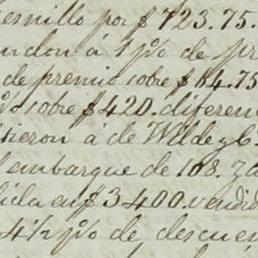 esnillo por $723.75.
ndon á 1 p% de pr
de premio sobre $84.75
p% sobre $420. diferen
tieron á de Wilde y Cª
embarque de 108. za
ida en $3400. vendid
4½ p% de descuen